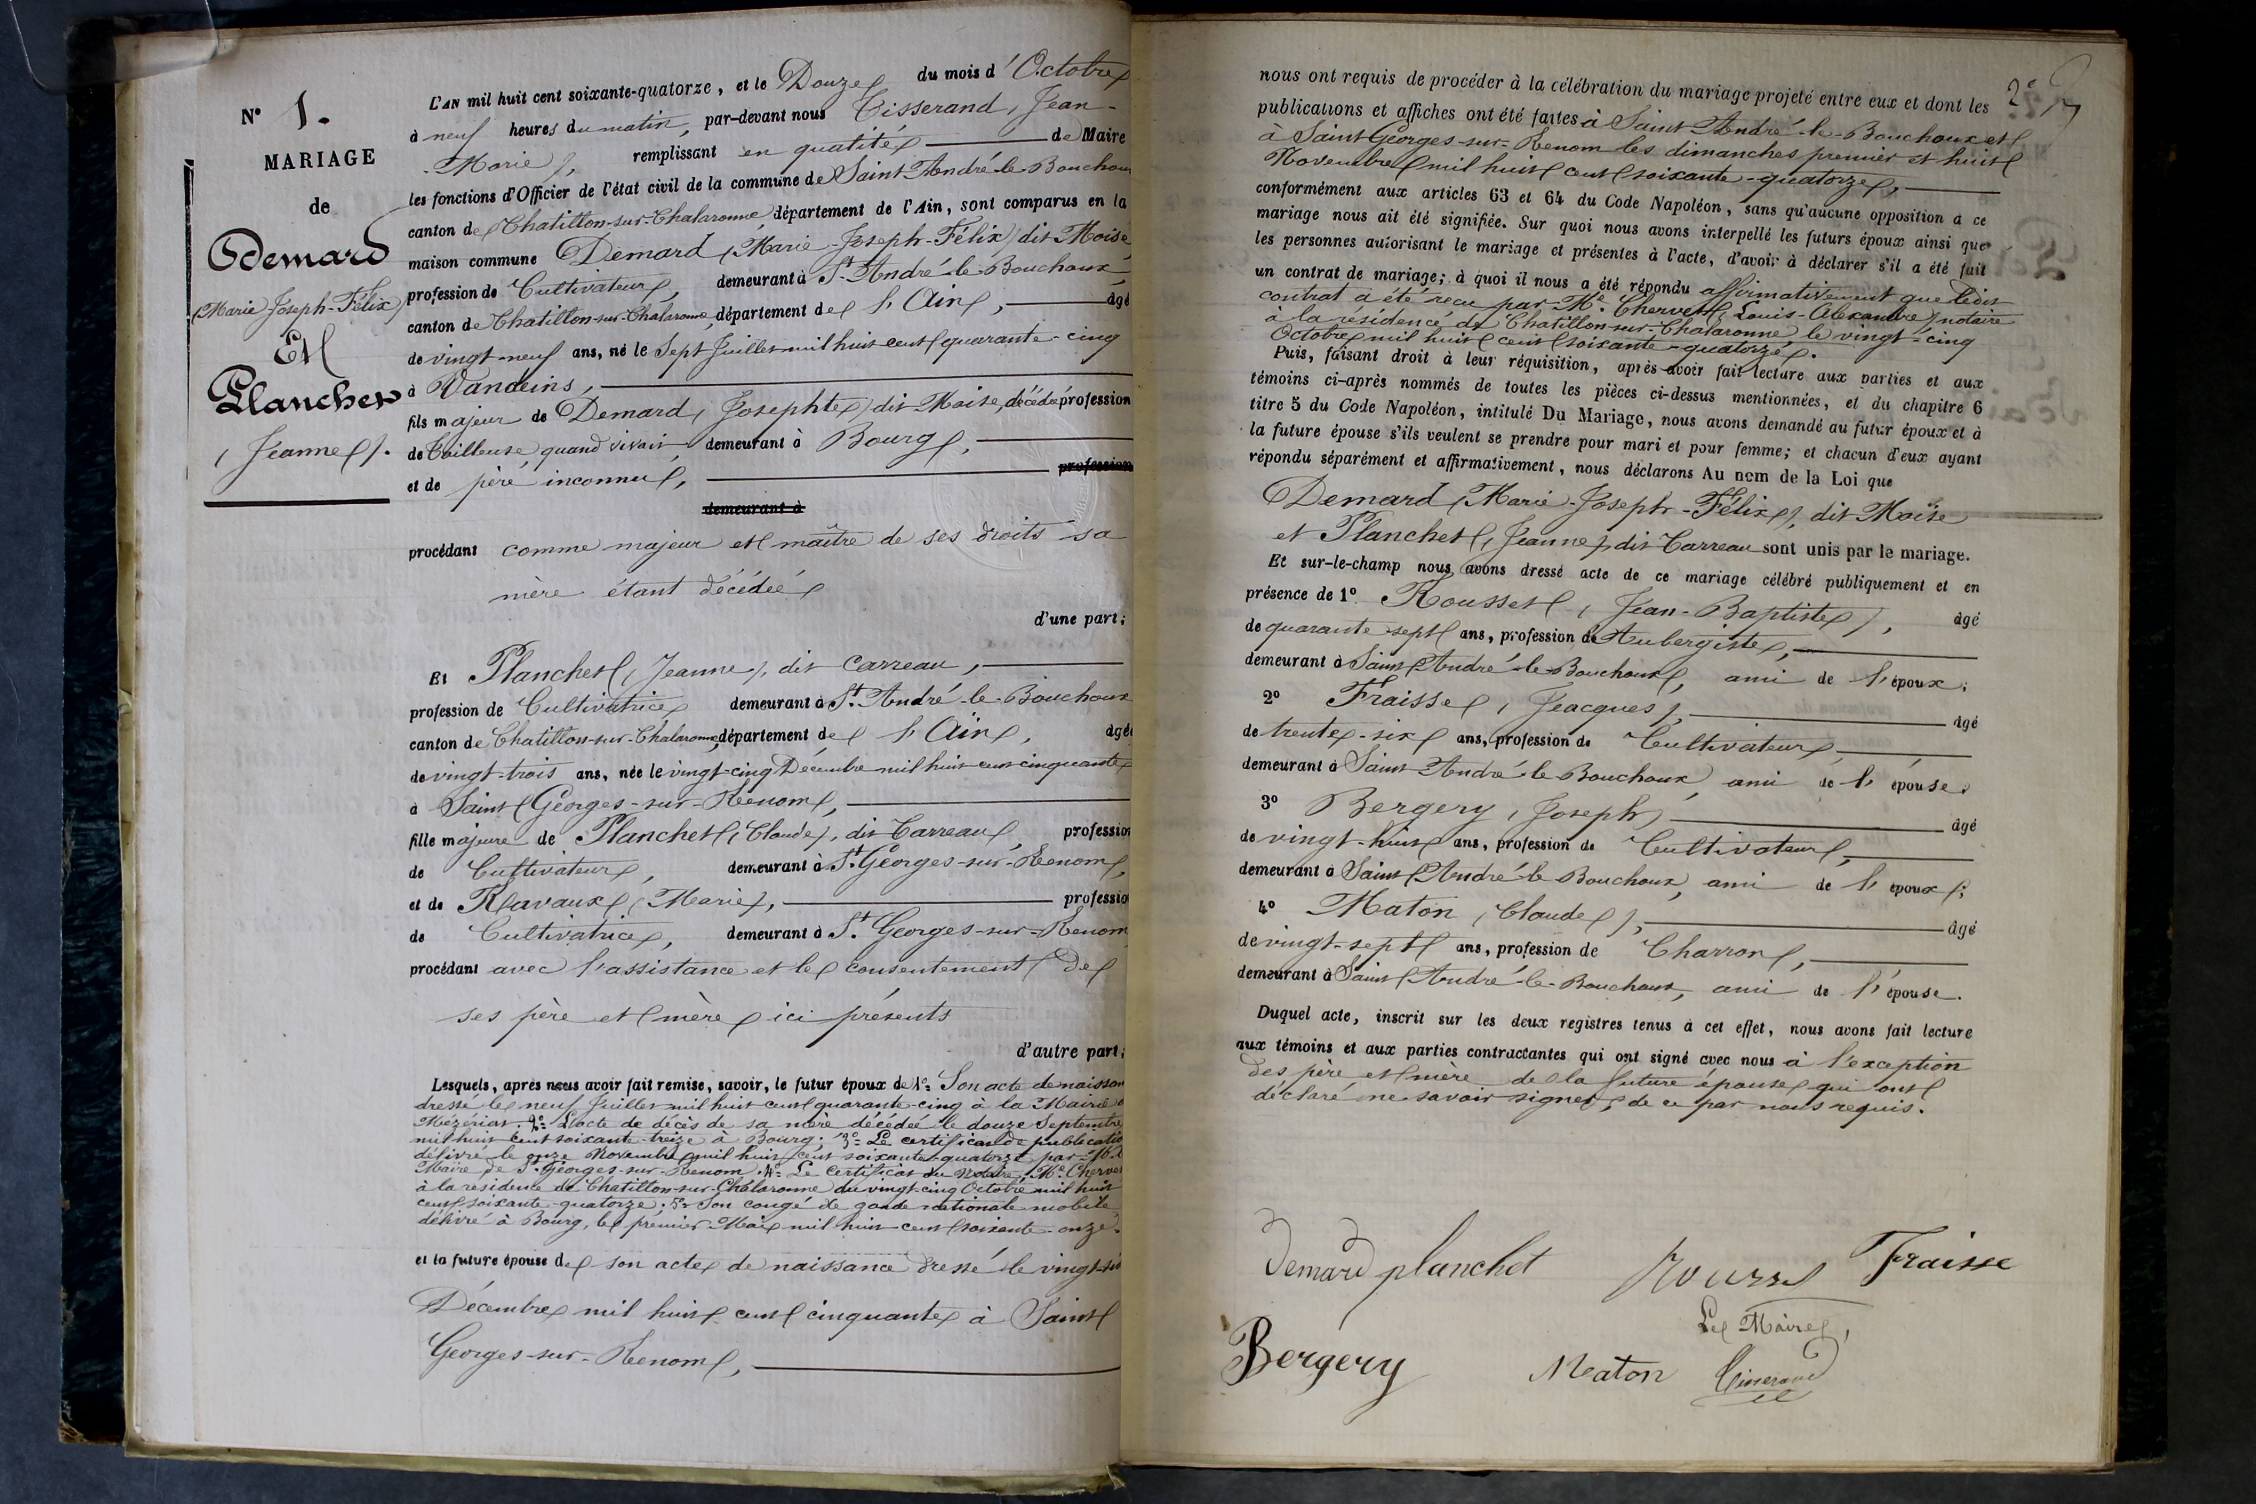 N° 1.
MARIAGE
de
Demard
(Marie Joseph-Félix)
Et
Planchet
(Jeanne).
L'AN mil huit cent soixante-quatorze, et le Douze du mois d'Octobre
à neuf heures du matin, par-devant nous Tisserand, Jean-
-Marie), remplissant en qualité de Maire
les fonctions d'Officier de l'état civil de la commune de Saint-André-le-Bouchoux
canton de Chatillon-sur-Chalaronne, département de l'Ain, sont comparus en la
maison commune Demard (Marie-Joseph-Félix) dit Moïse
profession de Cultivateur, demeurant à St-André-le-Bouchoux,
canton de Chatillon-sur-Chalaronne, département de l'Ain, âgé
de vingt-neuf ans, né le Sept Juillet mil huit cent quarante-cinq
à Vandeins,
fils majeur de Demard (Josephte) dit Moïse, décédée profession
de Tailleuse, quand vivait, demeurant à Bourg,
et de père inconnu, profession
demeurant à
procédant comme majeur et maître de ses droits sa
mère étant décédée
d'une part;
Et Planchet (Jeanne), dit Carreau,
profession de Cultivatrice demeurant à St-André-le-Bouchoux
canton de Chatillon-sur-Chalaronne, département de l'Ain, âgée
de vingt-trois ans, née le vingt-cinq Décembre mil huit cent cinquante
à Saint Georges-sur-Renom,
fille majeure de Planchet (Claude), dit Carreau, profession
de Cultivateur, demeurant à St-Georges-sur-Renom,
et de Ravaux (Marie), profession
de Cultivatrice, demeurant à St. Georges-sur-Renom
procédant avec l'assistance et le consentement de
ses père et mère ici présents
d'autre part;
Lesquels, après nous avoir fait remise, savoir, le futur époux de 1°= Son acte de naissan
dressé le neuf Juillet mil huit cent quarante-cinq à la Mairie
Mézériat. 2°= L'acte de décès de sa mère décédée le douze Septembre
mil huit cent soixante-treize à Bourg; 3°= Le certificat de publicatio
délivré le onze Novembre mil huit cent soixante-quatorze par
Maire de St-Georges-sur-Renom. 4°= Le Certificat du Notaire, Me Cherve
à la résidence de Chatillon-sur-Chalaronne du vingt-cinq Octobre mil huit
cent soixante-quatorze; 5°= Son congé de garde nationale mobile
délivré à Bourg, le premier Mai mil huit cent soixante-onze.
et la future épouse de son acte de naissance dressé le vingt-six
Décembre mil huit cent cinquante à Saint
Georges-sur-Renom,
2e
nous ont requis de procéder à la célébration du mariage projeté entre eux et dont les
publications et affiches ont été faites à Saint-André-le-Bouchoux et
à Saint Georges-sur-Renom les dimanches premier et huit
Novembre mil huit cent soixante-quatorze,
conformément aux articles 63 et 64 du Code Napoléon, sans qu'aucune opposition à ce
mariage nous ait été signifiée. Sur quoi nous avons interpellé les futurs époux ainsi que
les personnes autorisant le mariage et présentes à l'acte, d'avoir à déclarer s'il a été fait
un contrat de mariage; à quoi il nous a été répondu affirmativement que ledit
contrat a été reçu par Me Chervet (Louis-Alexandre) notaire
à la résidence de Chatillon-sur-Chalaronne le vingt-cinq
Octobre mil huit cent soixante-quatorze.
Puis, faisant droit à leur réquisition, après avoir fait lecture aux parties et aux
témoins ci-après nommés de toutes les pièces ci-dessus mentionnées, et du chapitre 6
titre 5 du Code Napoléon, intitulé Du Mariage, nous avons demandé au futur époux et à
la future épouse s'ils veulent se prendre pour mari et pour femme; et chacun d'eux ayant
répondu séparément et affirmativement, nous déclarons Au nom de la Loi que
Demard (Marie-Joseph-Félix), dit Moïse
et Planchet (Jeanne), dit Carreau sont unis par le mariage.
Et sur-le-champ nous avons dressé acte de ce mariage célébré publiquement et en
présence de 1° Rousset (Jean-Baptiste), âgé
de quarante-sept ans, profession de Aubergiste,
demeurant à Saint-André-le-Bouchoux, ami de l'époux;
2° Fraisse (Jeacques), âgé
de trente-six ans, profession de Cultivateur,
demeurant à Saint-André-le-Bouchoux, ami de l'épouse.
3° Bergery (Joseph) âgé
de vingt-huit ans, profession de Cultivateur,
demeurant à Saint-André-le-Bouchoux, ami de l'époux;
4° Maton (Claude), âgé
de vingt-sept ans, profession de Charron,
demeurant à Saint-André-le-Bouchoux, ami de l'épouse.
Duquel acte, inscrit sur les deux registres tenus à cet effet, nous avons fait lecture
aux témoins et aux parties contractantes qui ont signé avec nous à l'exception
des père et mère de la future épouse qui ont
déclaré ne savoir signer, de ce par nous requis.
Demard planchet Fraisse
Le Maire,
Bergery Meaton Tisserand